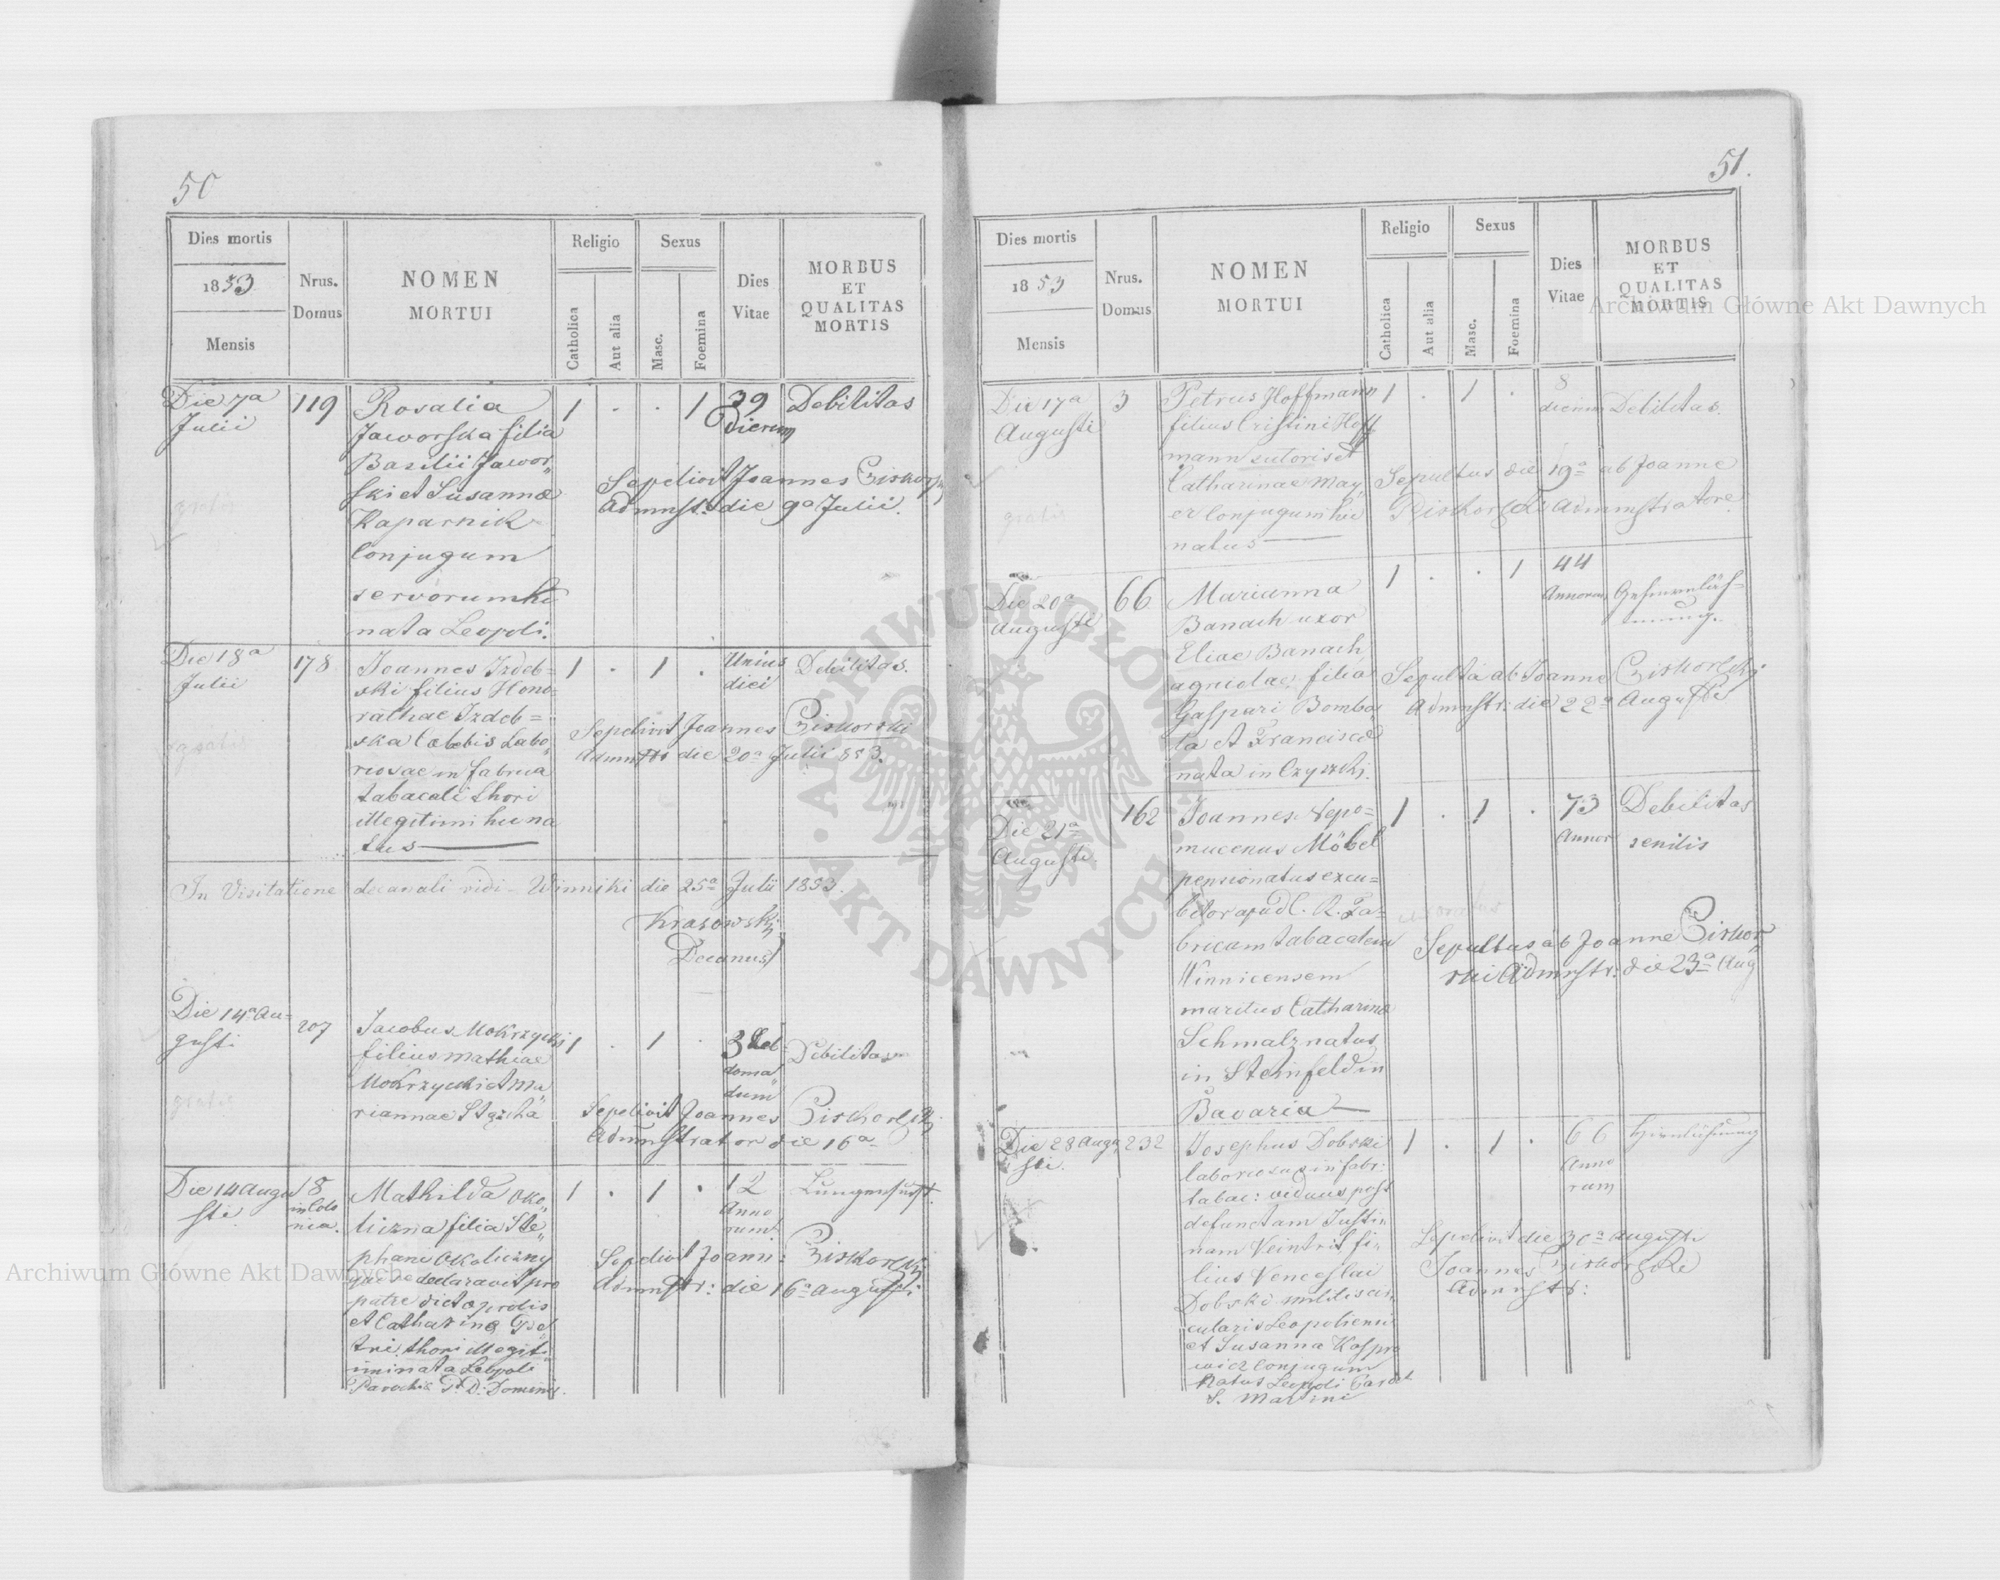 50
Dies mortis
1853
Mensis
Nrus.
Domus
NOMEN
MORTUI
Religio
Catholica
Aut alia
Sexus
Masc.
Foemina
Dies
Vitae
MORBUS
ET
QUALITAS
MORTIS
Die 7a
Julii
119
Rosalia
Jaworska filia
Basilii Jawor„
ski et Susannae
Kaparnik
Conjugum
servorum hic
nata Leopoli.
1 . . 1
39
dierum
Debilitas
Sepelivit Joannes
Admnst: die 9a Julii.
gratis
Die 18a
Julii
178
Joannes Izdeb=
ski filius Hono
rathae Izdeb=
ska Caelebis Labo„
riosae in fabrica
tabacali thori
illegitimi hic na
tus
1 . 1 .
Unius
diei
Debilitas.
Sepelivit Joannes Ciskorski
die 20a Julii 853.
gratis
In Visitatione decanali vidi Winniki die 25a Julii 1853.
Krasowski
Decanus
Die 14a Au=
gusti
207
Jacobus Mokrzycki
filius Mathiae
Mokrzycki et Ma
riannae
1 . 1 .
3 Heb=
doma
dum
Debilitas
Sepelivit Joannes
Admnstrator die 16a
gratis
Die 14 Augu
sti
8
in Colo
nia.
Mathilda Oko„
liczna filia Ste„
phani Okoliczny
qui se declaravit pro
patre dictae prolis
et Catharinae
thori illegit
imi nata Leopoli
Parochia P. D. Dominic.
1 . 1 .
12
Anno
rum
Sepelivit Joann:
Admnstr: die 16a Augusti
51.
Dies mortis
1853
Mensis
Nrus.
Domus
NOMEN
MORTUI
Religio
Catholica
Aut alia
Sexus
Masc.
Foemina
Dies
Vitae
MORBUS
ET
QUALITAS
MORTIS
Die 17a
Augusti
3
Petrus Hoffmann
filius Cristini Hoff
mann sutoris et
Catharinae May„
er Conjugum hic
natus
1 . 1 .
8
dierum
Debilitas.
Sepultus die 19a ab Joanne
Admnstratore.
gratis
Die 20a
Augusti
66
Marianna
Banach uxor
Eliae Banach
agricolae, filia
Gaspari Bomba„
la et Franciscae
nata in Czyszki.
1 . . 1
44
Annorum
Sepulta ab Joanne
Admnstr: die 22a Augusti
Die 21a
Augusti
162
Joannes Nepo=
mucenus Möbel
pensionatus excu=
bitor apud C. R. Fa=
bricam tabacalem
Winnicensem
maritus Catharinae
Schmalz natus
in Steinfeld in
Bavaria
1 . 1 .
73
Annor
Debilitas
senilis
Sepultus ab Joanne Ciskor„
ski Admnstr: die 23a Aug
Die 28 Augu
sti.
232
Josephus Dobski
laboriosus in fabr:
tabac: viduus post
defunctam Justi=
nam Veintrit fi=
lius Venceslai
Dobski militis cir„
cularis Leopoliensis
et Susanna Kaspro
wicz Conjugum
natus Leopoli Paroch
S. Martini
1 . 1 .
66
Anno
rum
Sepelivit die 30a Augusti
Joannes
Admnstr:
Archiwum Główne Akt Dawnych
Archiwum Główne Akt Dawnych
ARCHIWUM GŁÓWNE
AKT DAWNYCH